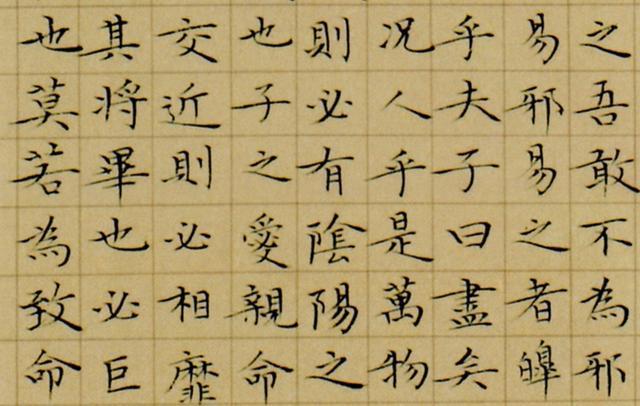 之吾敢不為邪
易邪易之者皞
乎夫子曰盡矣
况人乎是萬物
則必有陰陽之
也子之愛親命
交近則必相靡
其將畢也必巨
也莫若為致命